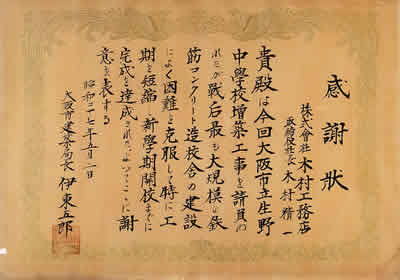 感謝狀
株式會社 木村工務店
取締役社長 木村精一
貴殿は今回大阪市立生野
中學校増築工事を請負わ
れたが戦后最も大規模な鉄
筋コンクリート造校舎の建設
によく困難を克服して特に工
期を短縮し新學期開校までに
完成を達成されたよってここに謝
意を表する
昭和二十七年五月二日
大阪市建築局長 伊東五郎